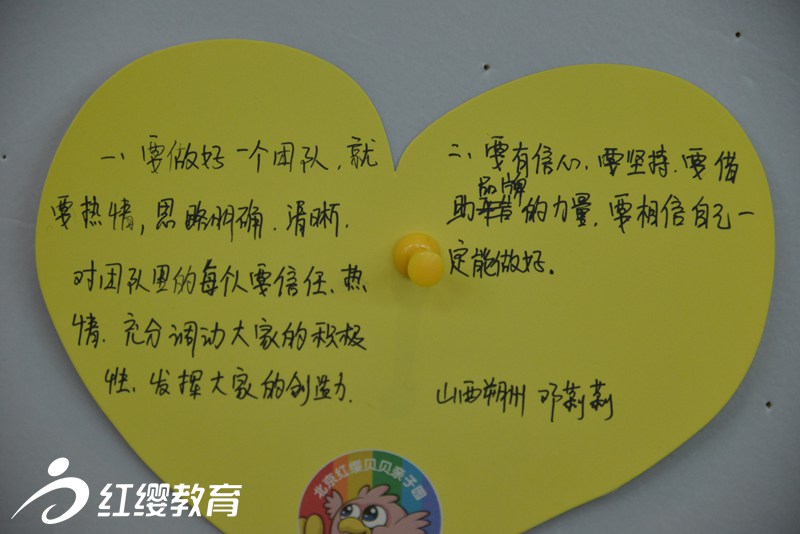 一、要做好一个团队，就
要热情，思路明确、清晰.
对团队里的每个人要信任、热
情、充分调动大家的积极
性、发挥大家的创造力.
二、要有信心、要坚持、要借
助品牌的力量，要相信自己一
定能做好。
山西朔州 邓莉莉
北京红缨贝贝亲子园
红缨教育